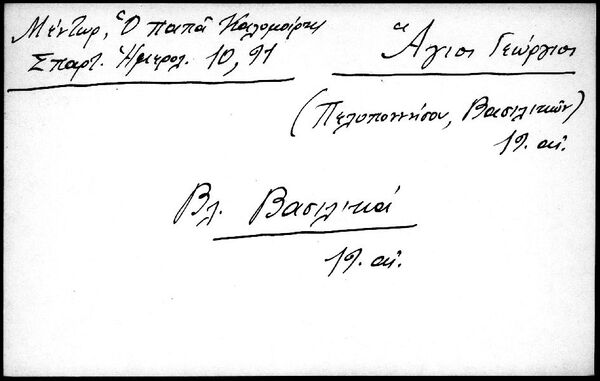 Μέντωρ, Ὁ παπᾶ Καλομοίρης
Σπαρτ. Ἡμερολ. 10, 91
Ἅγιος Γεώργιος
(Πελοποννήσου, Βασιλικῶν)
19. αἰ.
Βλ. Βασιλικά
19. αἰ.